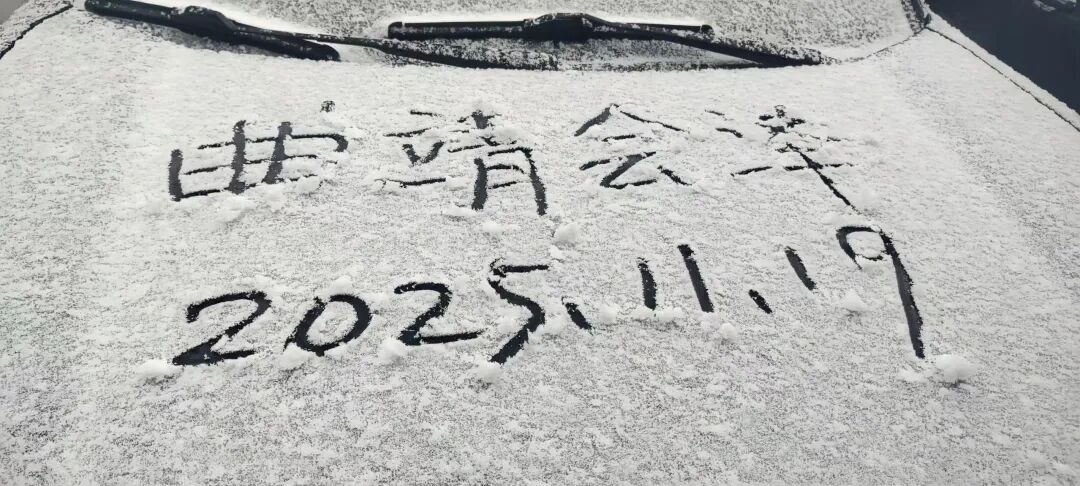 曲靖会泽
2025.11.19